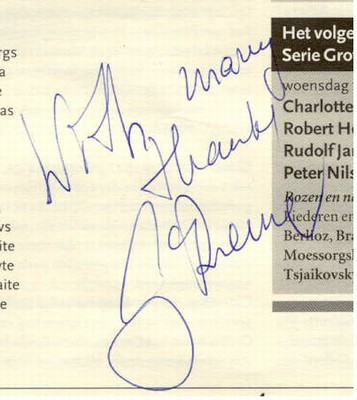 Het volge
Serie Gro
woensdag
Charlotte
Robert H
Rudolf Ja
Peter Nils
Rozen en n
Liederen en
Berlioz, Bra
Moessorgs
Tsjaikovsk
With many
thanks
rgs
a
e
as
vs
aite
yte
aite
e